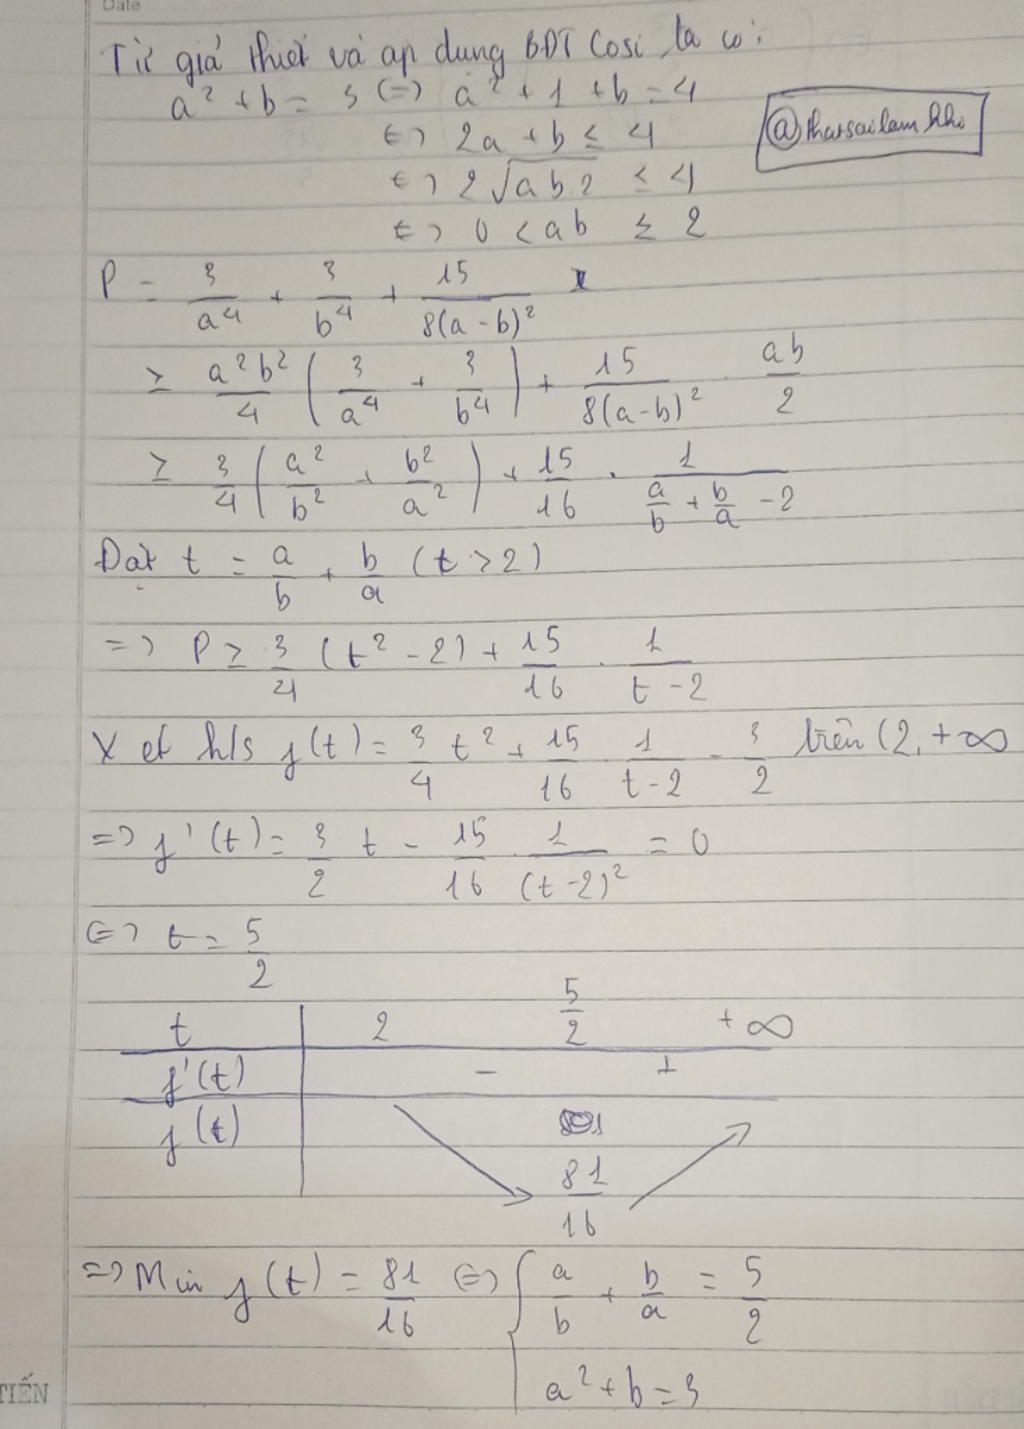 Date
Từ giả thiết và áp dụng BĐT Cosi ta có:
a² + b = 3 (=) a² + 1 + b = 4
@thatsailamkhi
(=) 2a + b ≤ 4
(=) 2√ab.2 ≤ 4
(=) 0 < ab ≤ 2
P = 3/a⁴ + 3/b⁴ + 15/8(a-b)²
≥ a²b²/4 (3/a⁴ + 3/b⁴) + 15/8(a-b)² . ab/2
≥ 3/4 (a²/b² + b²/a²) + 15/16 . 1/(a/b + b/a - 2)
Đặt t = a/b + b/a (t > 2)
=) P ≥ 3/4 (t² - 2) + 15/16 . 1/(t - 2)
Xét h/s f(t) = 3/4 t² + 15/16 . 1/(t-2) - 3/2 trên (2, +∞
=) f'(t) = 3/2 t - 15/16 . 1/(t-2)² = 0
(=) t = 5/2
t 2 5/2 +∞
f'(t) - +
f(t)
81/16
=) Min f(t) = 81/16 (=) { a/b + b/a = 5/2
a² + b = 3
TIẾN